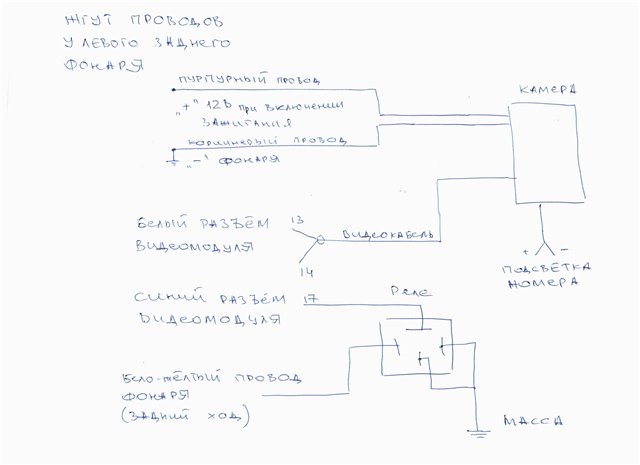 ЖГУТ ПРОВОДОВ
У ЛЕВОГО ЗАДНЕГО
ФОНАРЯ
ПУРПУРНЫЙ ПРОВОД
КАМЕРА
"+" 12В ПРИ ВКЛЮЧЕНИИ
ЗАЖИГАНИЯ
КОРИЧНЕВЫЙ ПРОВОД
"-" ФОНАРЯ
БЕЛЫЙ РАЗЪЁМ
ВИДЕОМОДУЛЯ
13
14
ВИДЕОКАБЕЛЬ
+ -
ПОДСВЕТКА
НОМЕРА
СИНИЙ РАЗЪЁМ 17
ВИДЕОМОДУЛЯ
Реле
БЕЛО-ЖЁЛТЫЙ ПРОВОД
ФОНАРЯ
(ЗАДНИЙ ХОД)
МАССА